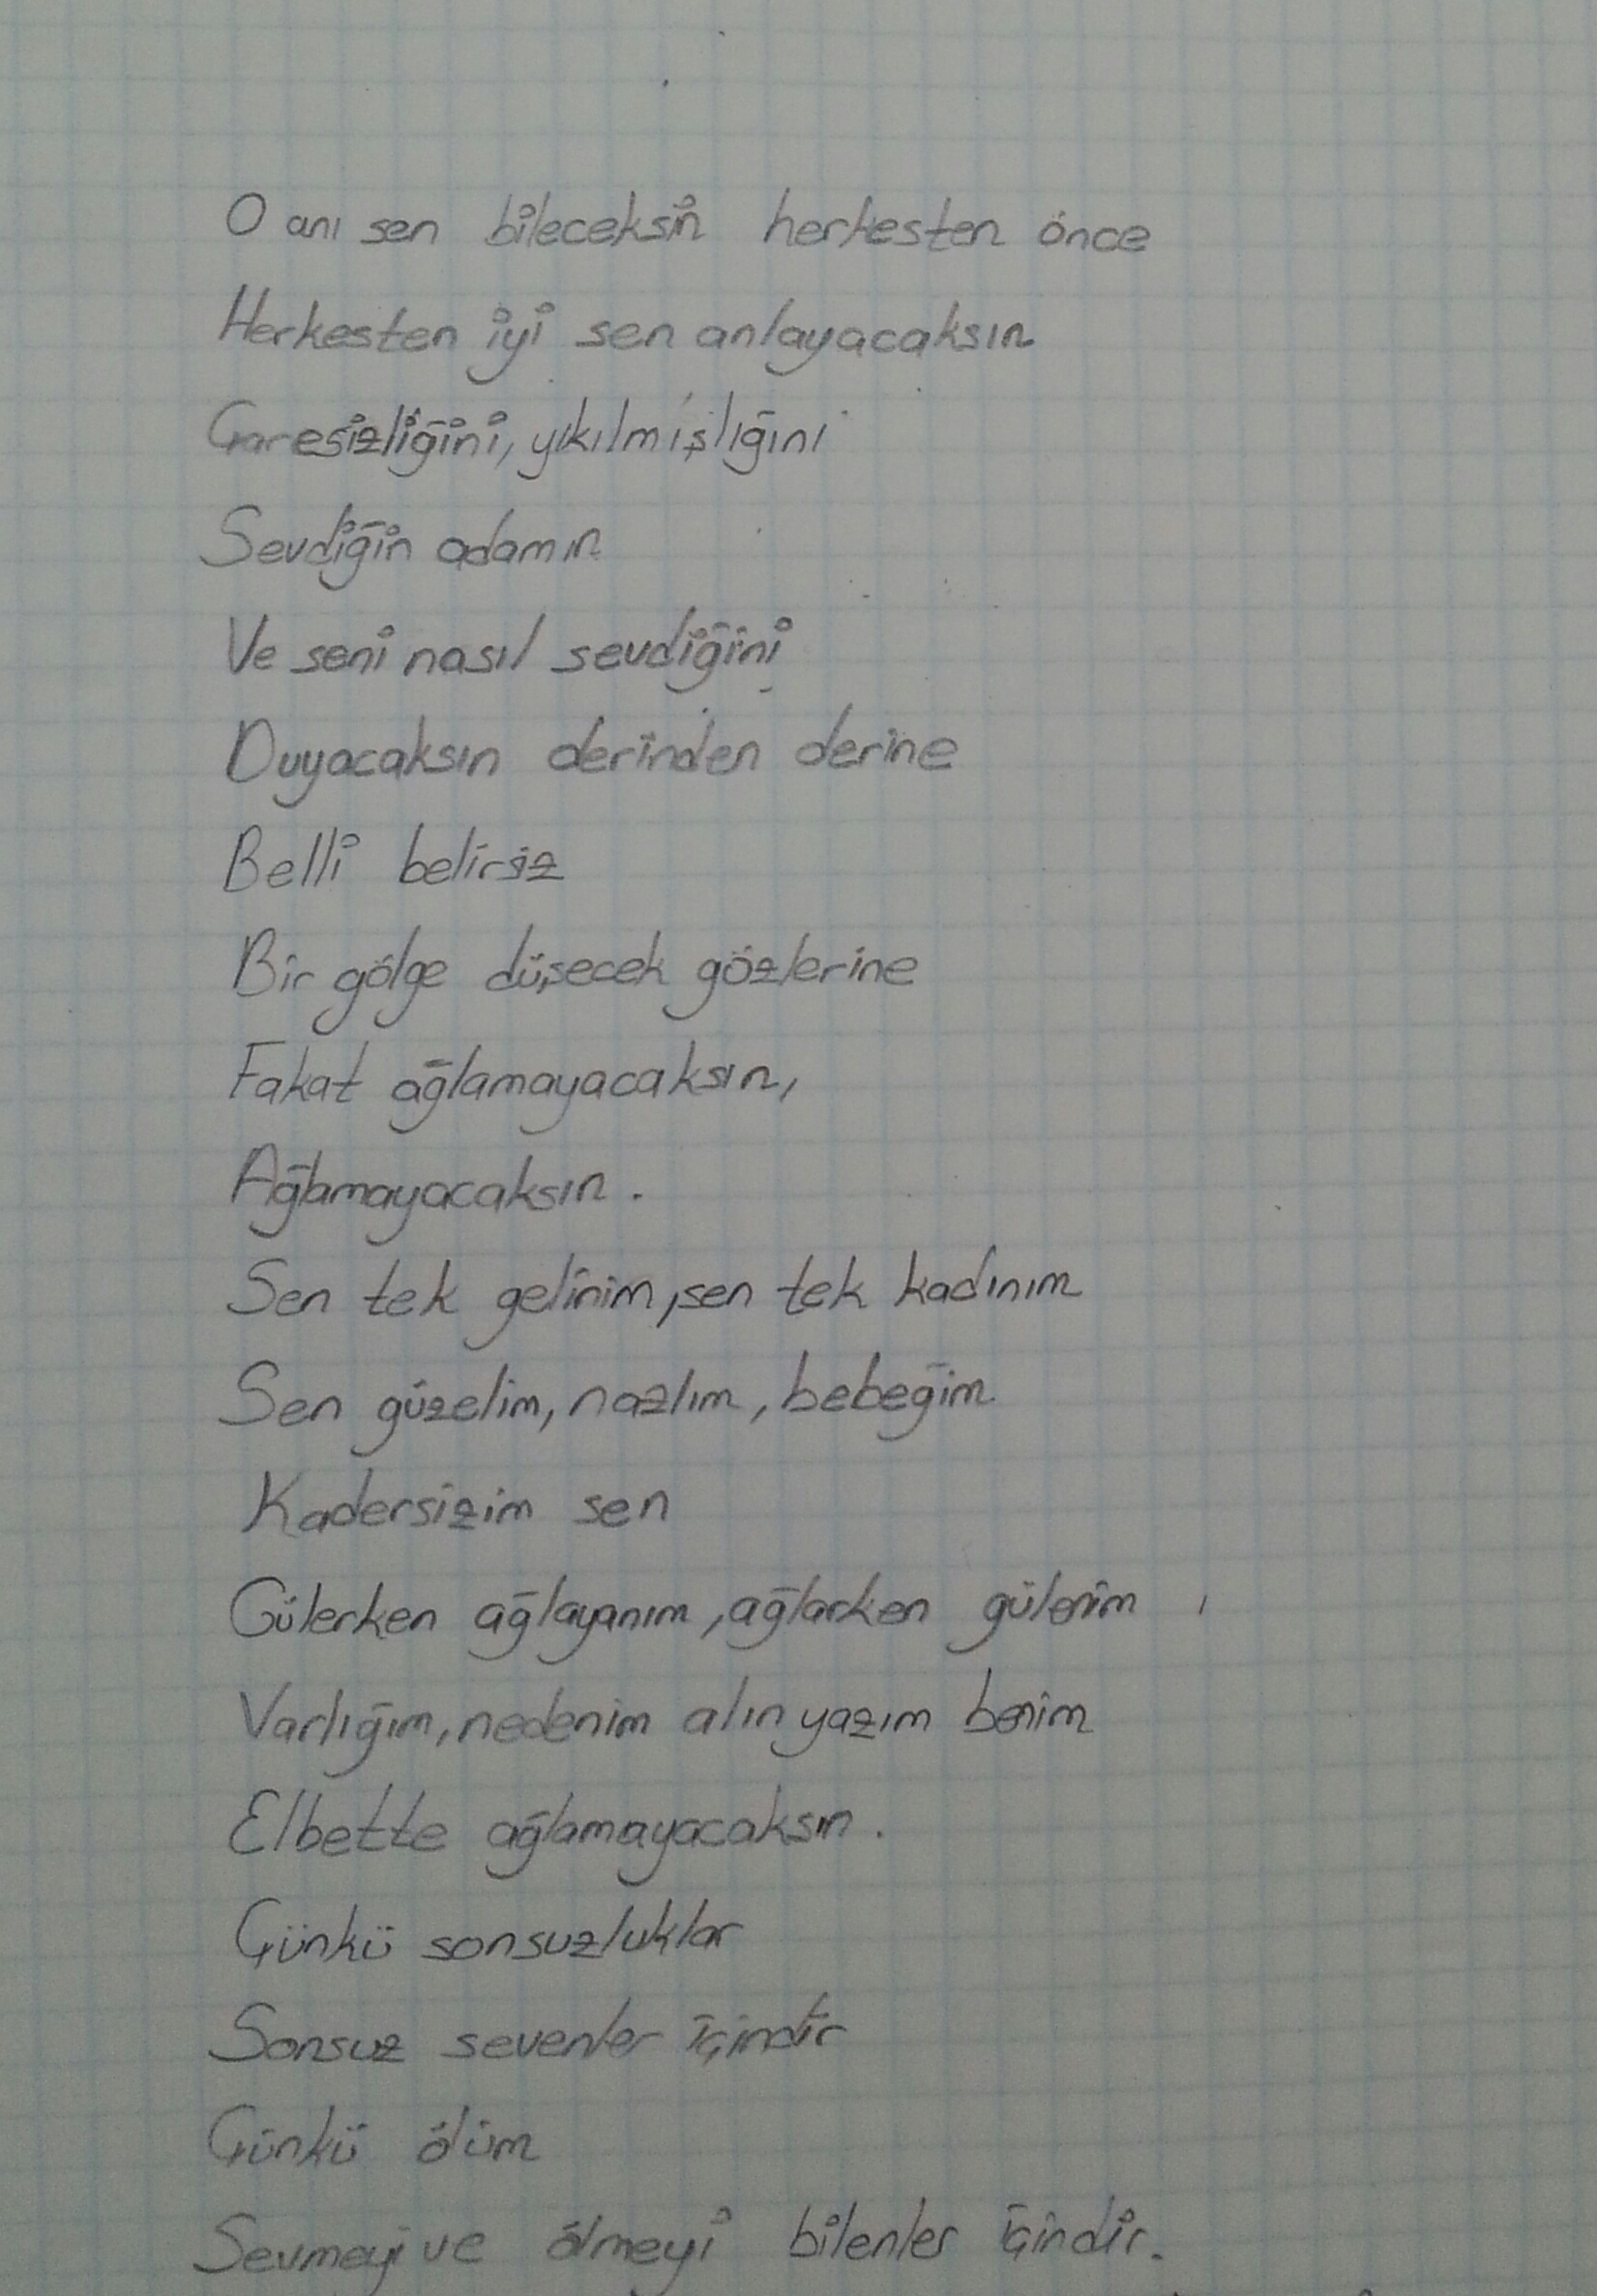 O anı sen bileceksin herkesten önce
Herkesten iyi sen anlayacaksın
Çaresizliğini, yıkılmışlığını
Sevdiğin adamın
Ve seni nasıl sevdiğini
Duyacaksın derinden derine
Belli belirsiz
Bir gölge düşecek gözlerine
Fakat ağlamayacaksın,
Ağlamayacaksın.
Sen tek gelinim, sen tek kadınım
Sen güzelim, nazlım, bebeğim
Kadersizim sen
Gülerken ağlayanım, ağlarken gülenim
Varlığım, nedenim alın yazım benim
Elbette ağlamayacaksın.
Çünkü sonsuzluklar
Sonsuz sevenler içindir
Çünkü ölüm
Sevmeyi ve ölmeyi bilenler içindir.